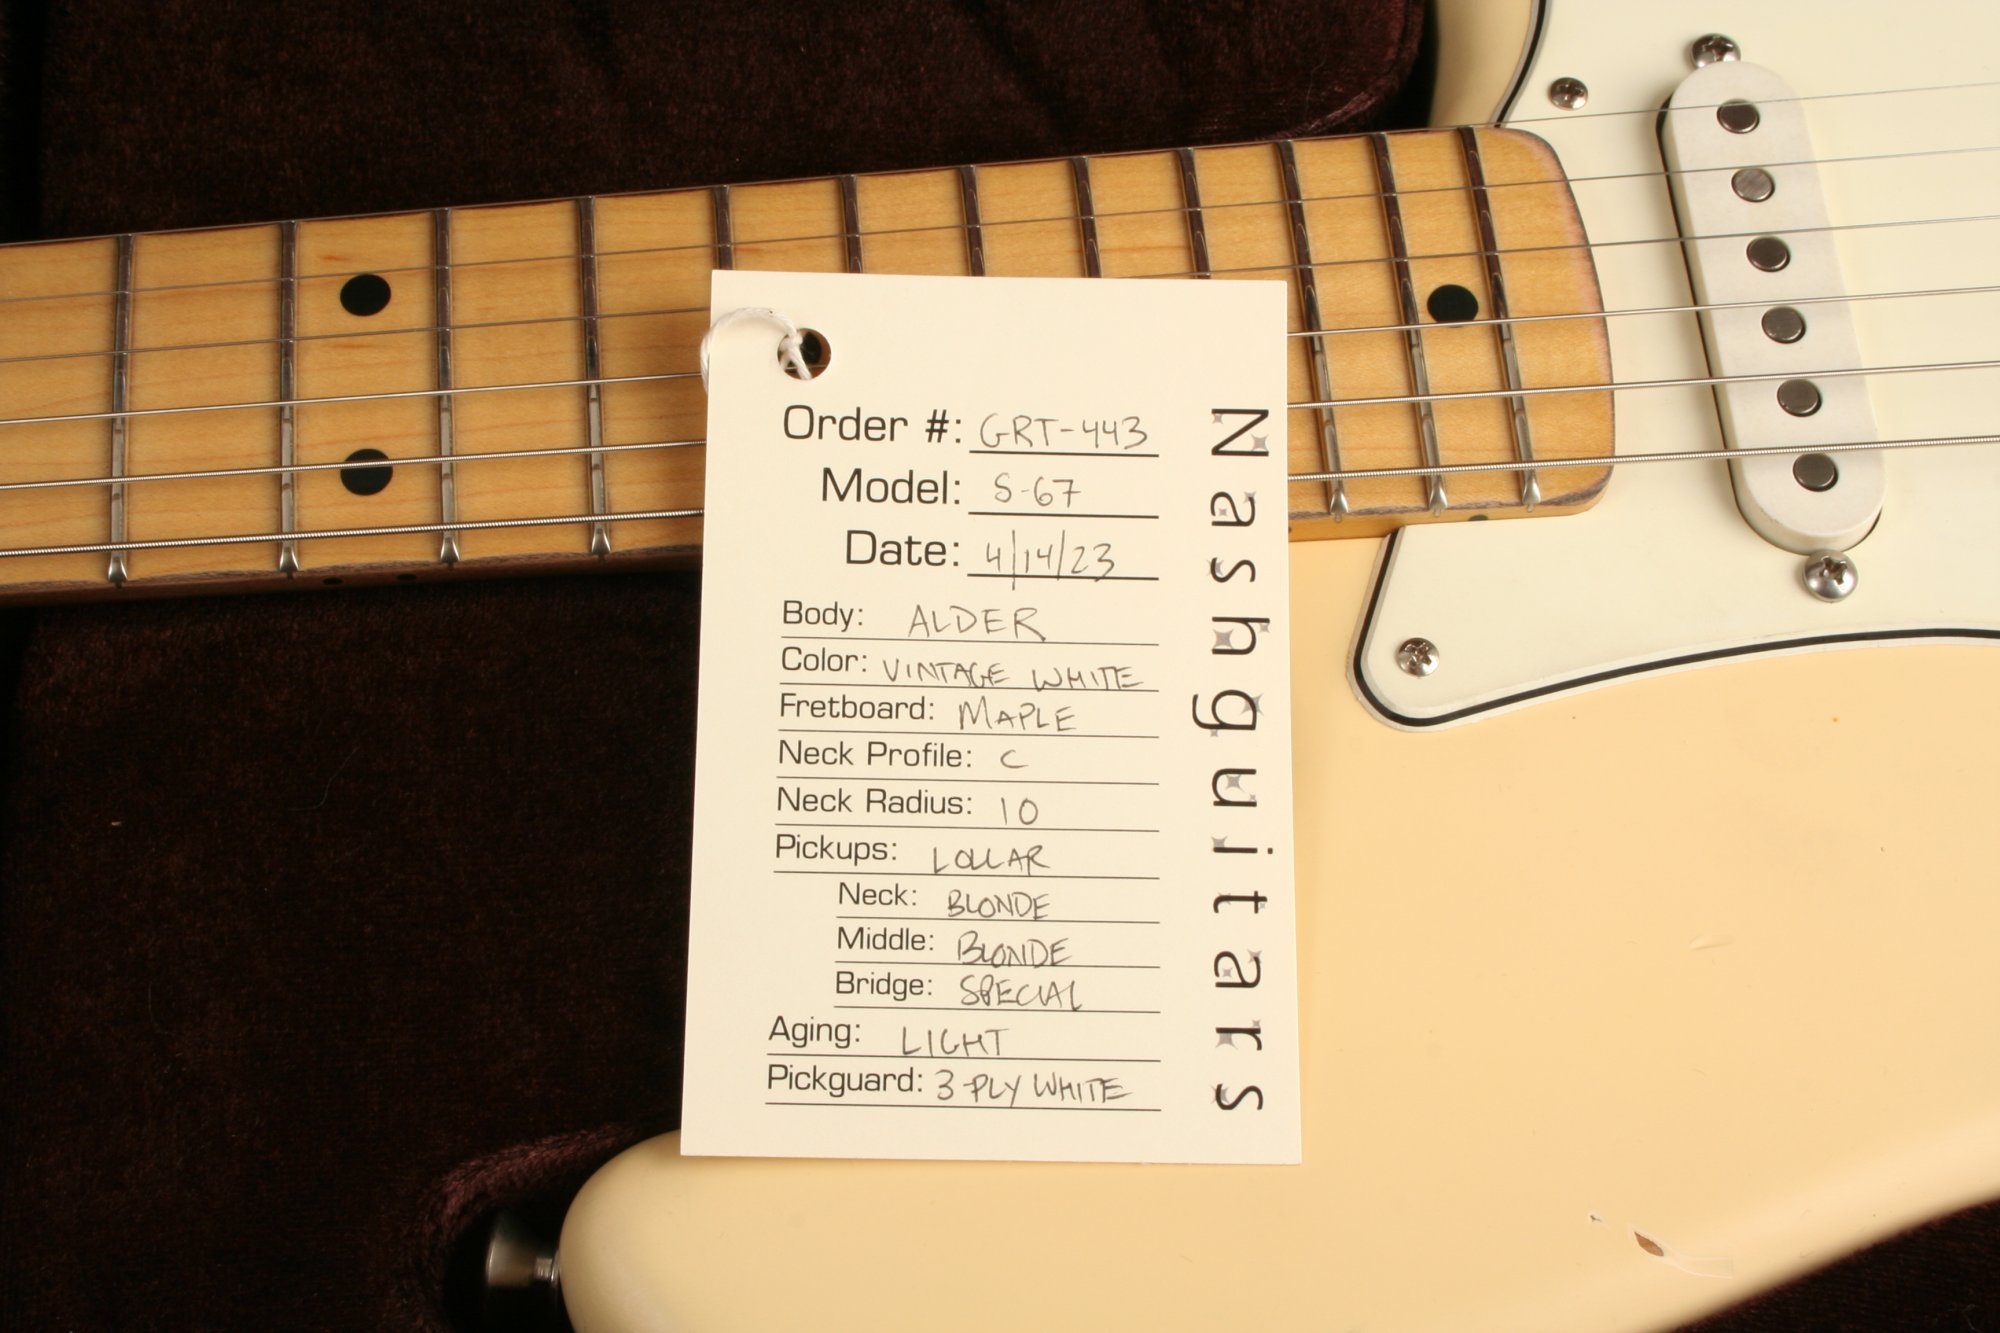 Order #: GRT-443
Model: S-67
Date: 4/14/23
Body: ALDER
Color: VINTAGE WHITE
Fretboard: MAPLE
Neck Profile: C
Neck Radius: 10
Pickups: LOLLAR
Neck: BLONDE
Middle: BLONDE
Bridge: SPECIAL
Aging: LIGHT
Pickguard: 3-PLY WHITE
Nashguitars